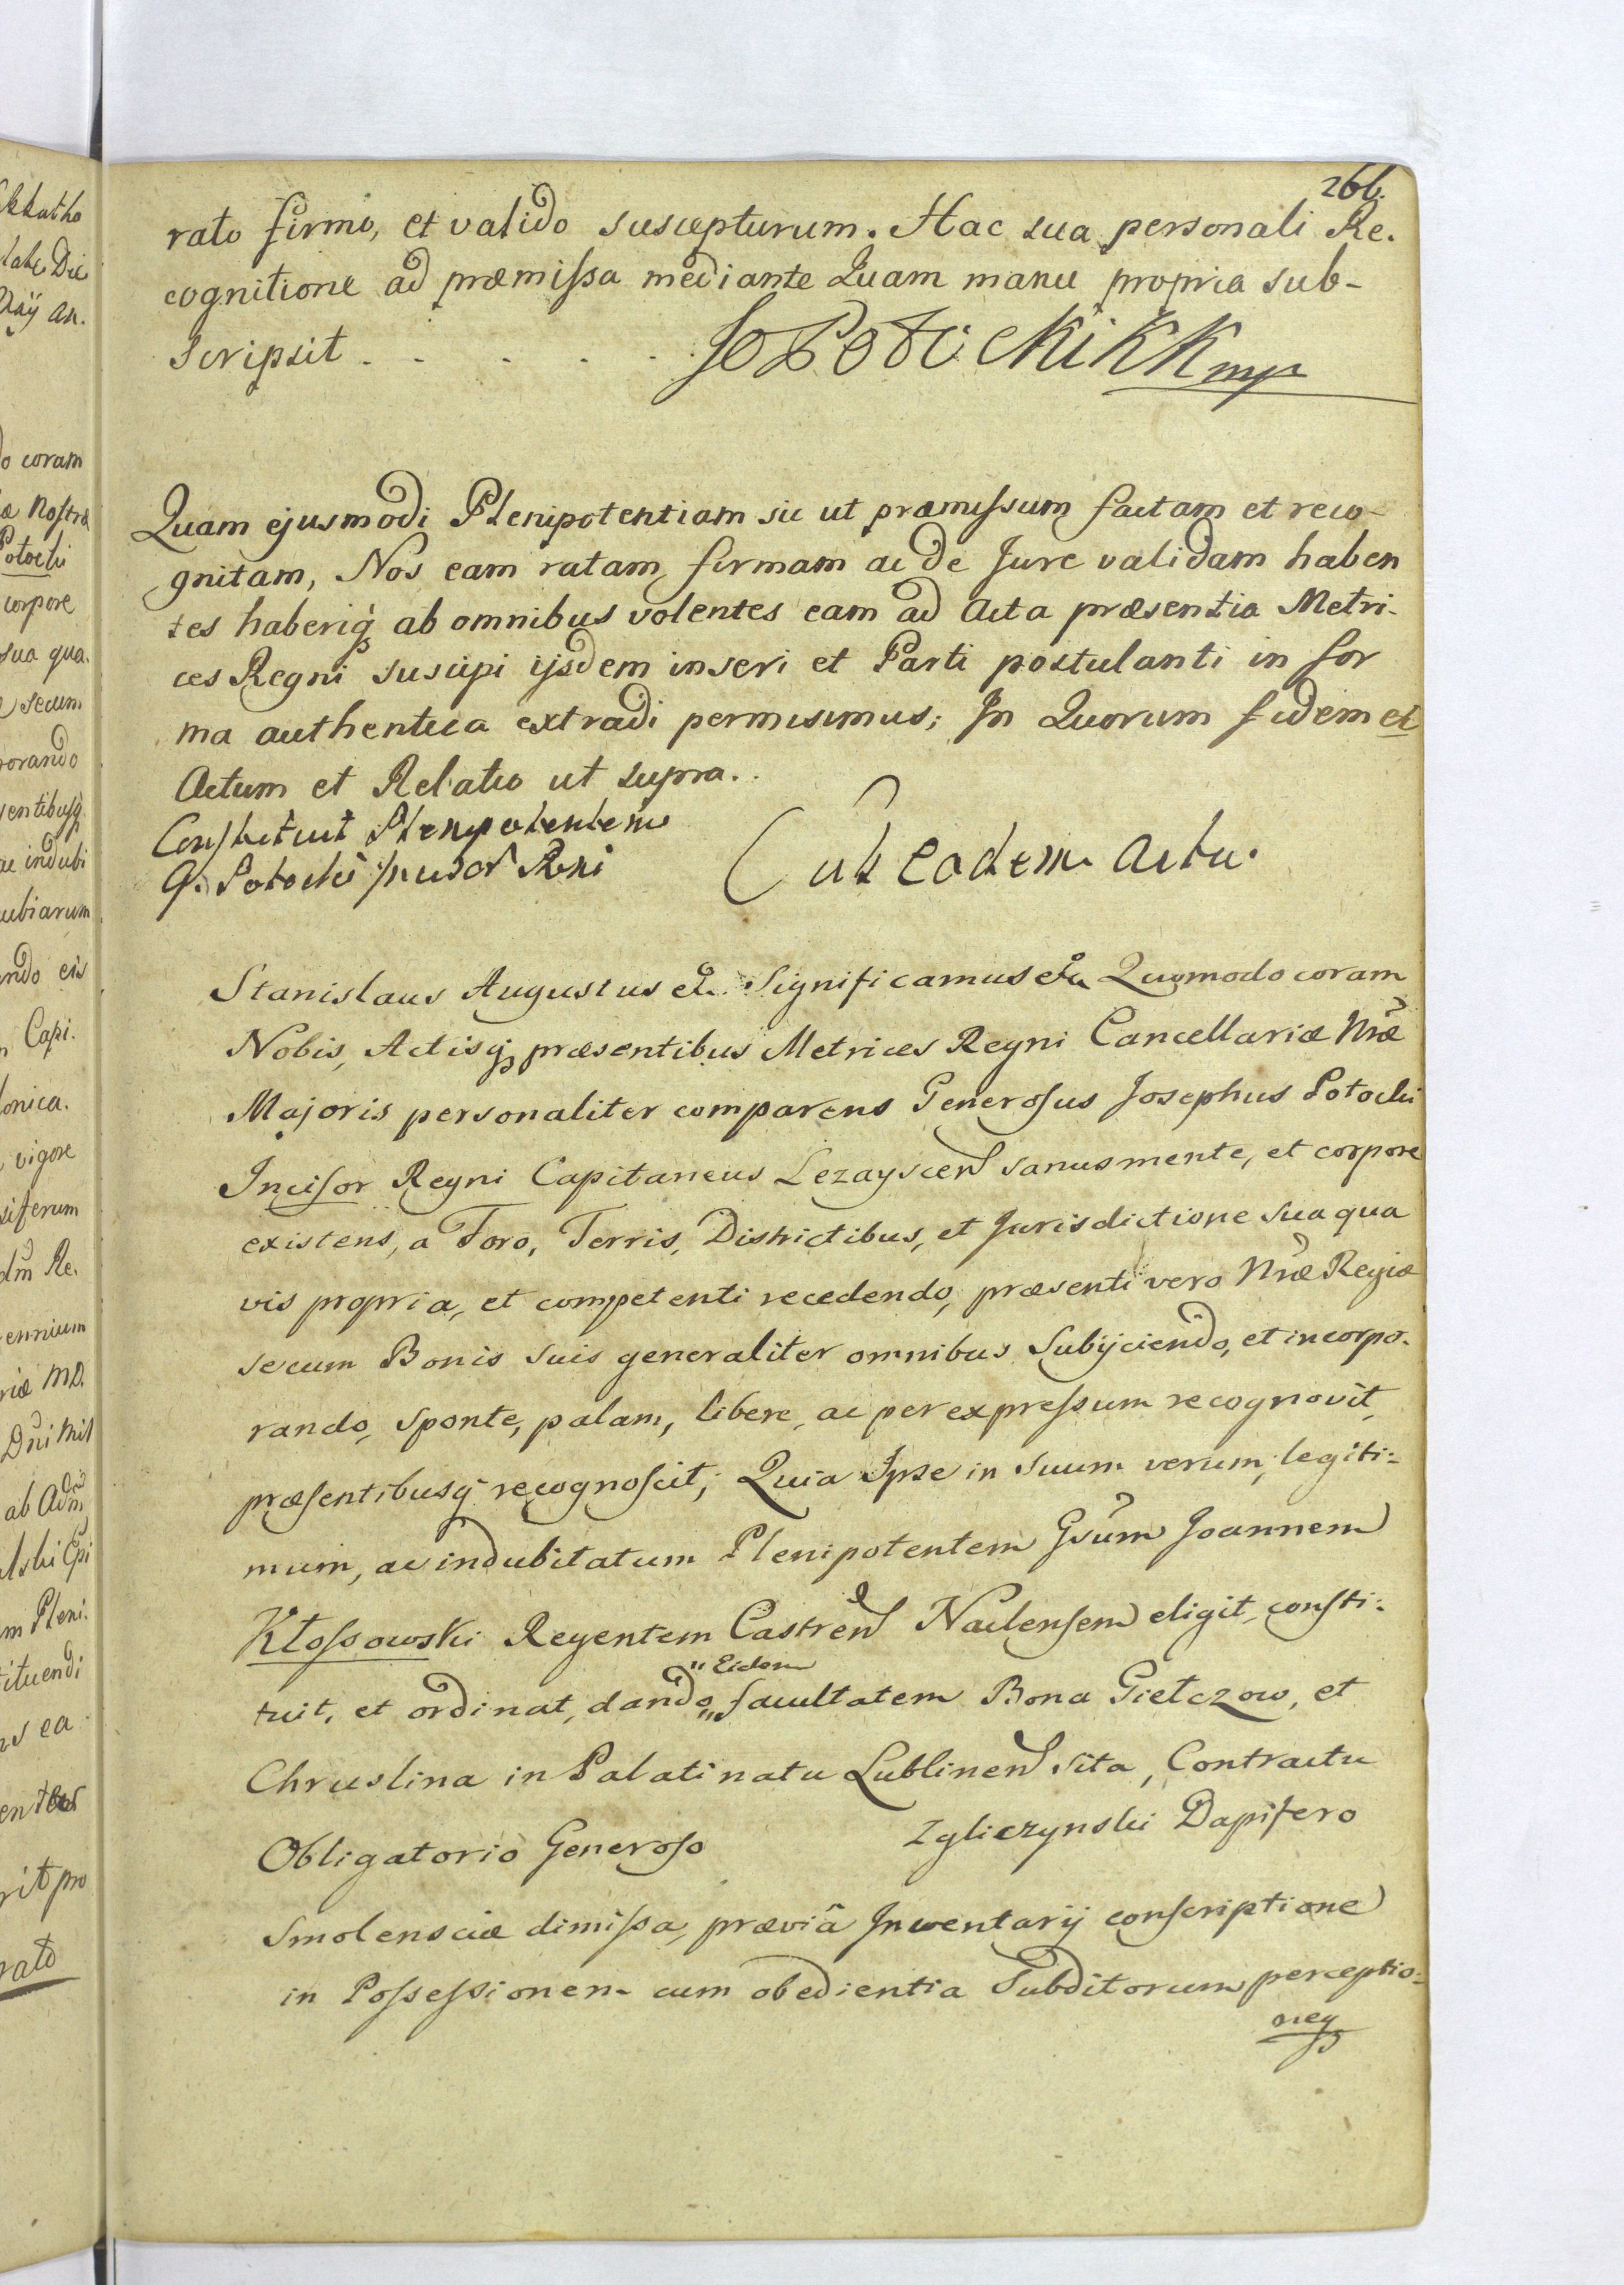 266.
rato firmo, et valido suscepturum. Hac sua personali Re.
cognitione ad præmiſsa mediante Quam manu propria sub-
scripsit . . . . . . JPotocki KK mp
Quam ejusmodi Plenipotentiam sic ut præmiſsum factam et reco-
gnitam, Nos eam ratam, firmam ac de Jure validam haben
tes haberiq̃ ab omnibus volentes eam ad Acta præsentia Metri-
ces Regni suscipi ijsdem inseri et Parti postulanti in for
ma authentica extradi permisimus; In Quorum fidem et
Actum et Relatio ut supra..
Conſtituit Plenipotentem
G. Potocki Incisor Rni
Sub eadem Actu.
Stanislaus Augustus etc. Significamus etc. Quomodo coram
Nobis, Actisq̃ præsentibus Metrices Regni Cancellariæ Nr̃æ
Majoris personaliter comparens Generoſus Josephus Potocki
Inciſor Regni Capitaneus Lezayscen̄ sanus mente, et corpore
existens, a Foro, Terris, Districtibus, et Jurisdictione sua qua
vis propria, et competenti recedendo, præsenti vero Nr̃æ Regiæ
secum Bonis suis generaliter omnibus Subijciendo, et incorpo.
rando, sponte, palam, libere, ac per expreſsum recognovit,
præſentibusq̃ recognoſcit; Quia Ipse in suum verum, legiti-
mum, ac indubitatum Plenipotentem Gsũm Joannem
Kłoſsowski Regentem Castren̄ Naclenſem eligit, conſti-
tuit, et ordinat, dando „ Eidem facultatem Bona Giełczow, et
Chruslina in Palatinatu Lublinen̄ sita, Contractu
Obligatorio Generoſo Zgliczynski Dapifero
Smolensciæ dimiſsa, præviâ Inventarij conſcriptione
in Poſseſsionem cum obedientia Subditorum perceptio-
neq̃